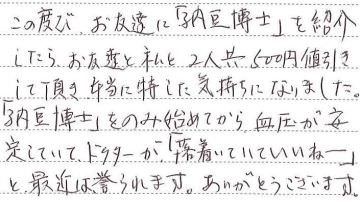 この度び、お友達に「納豆博士」を紹介
したら、お友達と私と2人共500円値引き
して頂き本当に得した気持ちになりました。
「納豆博士」をのみ始めてから、血圧が安
定していて、ドクターが、「落着いていていいねー」
と、最近は誉られます。ありがとうございます。